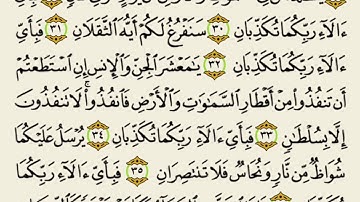 ءَالَآءِ رَبِّكُمَا تُكَذِّبَانِ ٣٠ سَنَفْرُغُ لَكُمْ أَيُّهَ ٱلثَّقَلَانِ ٣١ فَبِأَيِّ
ءَالَآءِ رَبِّكُمَا تُكَذِّبَانِ ٣٢ يَٰمَعْشَرَ ٱلْجِنِّ وَٱلْإِنسِ إِنِ ٱسْتَطَعْتُمْ
أَن تَنفُذُوا۟ مِنْ أَقْطَارِ ٱلسَّمَٰوَٰتِ وَٱلْأَرْضِ فَٱنفُذُوا۟ ۚ لَا تَنفُذُونَ
إِلَّا بِسُلْطَٰنٍ ٣٣ فَبِأَيِّ ءَالَآءِ رَبِّكُمَا تُكَذِّبَانِ ٣٤ يُرْسَلُ عَلَيْكُمَا
شُوَاظٌ مِّن نَّارٍ وَنُحَاسٌ فَلَا تَنتَصِرَانِ ٣٥ فَبِأَيِّ ءَالَآءِ رَبِّكُمَا